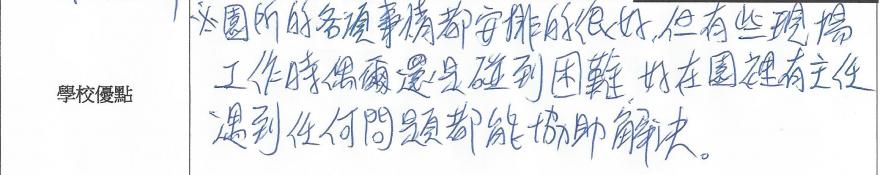 ※園所的各項事情都安排的很好,但有些現場
工作時偶爾還是碰到困難,好在園裡有主任
學校優點
遇到任何問題都能協助解決。